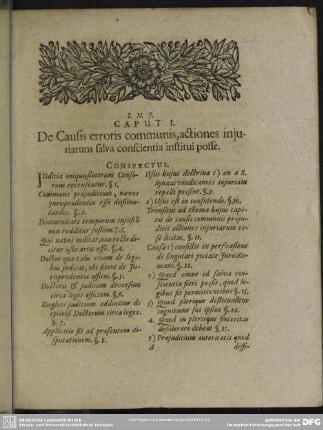 I. N. J.
CAPUT I.
De Causis erroris communis, actiones inju-
riarum salva conscientia institui posse.
CONSPECTUS.
Judicia eniquissimorum Censo-
rum recensentur. §. 1.
Commune præjudicium, nævos
jurisprudentiæ esse dissimu-
landos. §. 2.
Diuturnitate temporum injustū
non redditur justum. §. 3.
Qui nævos indicat, non recte di-
citur esse artis osor. §. 4.
Doctor qua talis etiam de legi-
bus judicat, uti simul de Ju-
risprudentia osor. §. 5.
Doctoris & judicum diversum
circa leges officium. §. 6.
Ziegleri judicium additur de
officio Doctorum circa leges.
§. 7.
Applicatio fit ad præsentem di-
sputationem. §. 8.
Usus hujus doctrinæ 1) an à S.
Synaxi vindicantes injuriam
repelli possint. 9.
2) Usus est in consulendo. §. 10.
Transitus ad thema hujus capi-
tis de causis communis præju-
dicii actiones injuriarum es-
se licitas. §. 11.
Causa 1) consistit in persvasione
de singulari pietate Juriscon-
Romani. §. 12.
2) Quod omne id salva con-
scientia fieri possit, quod le-
gibus sit permittentibus. §. 13.
3) Quod plerique destituantur
cognitione sui ipsius. §. 14.
4. Quod in plerisque sinceritas
desiderari debeat. §. 15.
5) Præjudicium autoritatis quod
A
dissi-